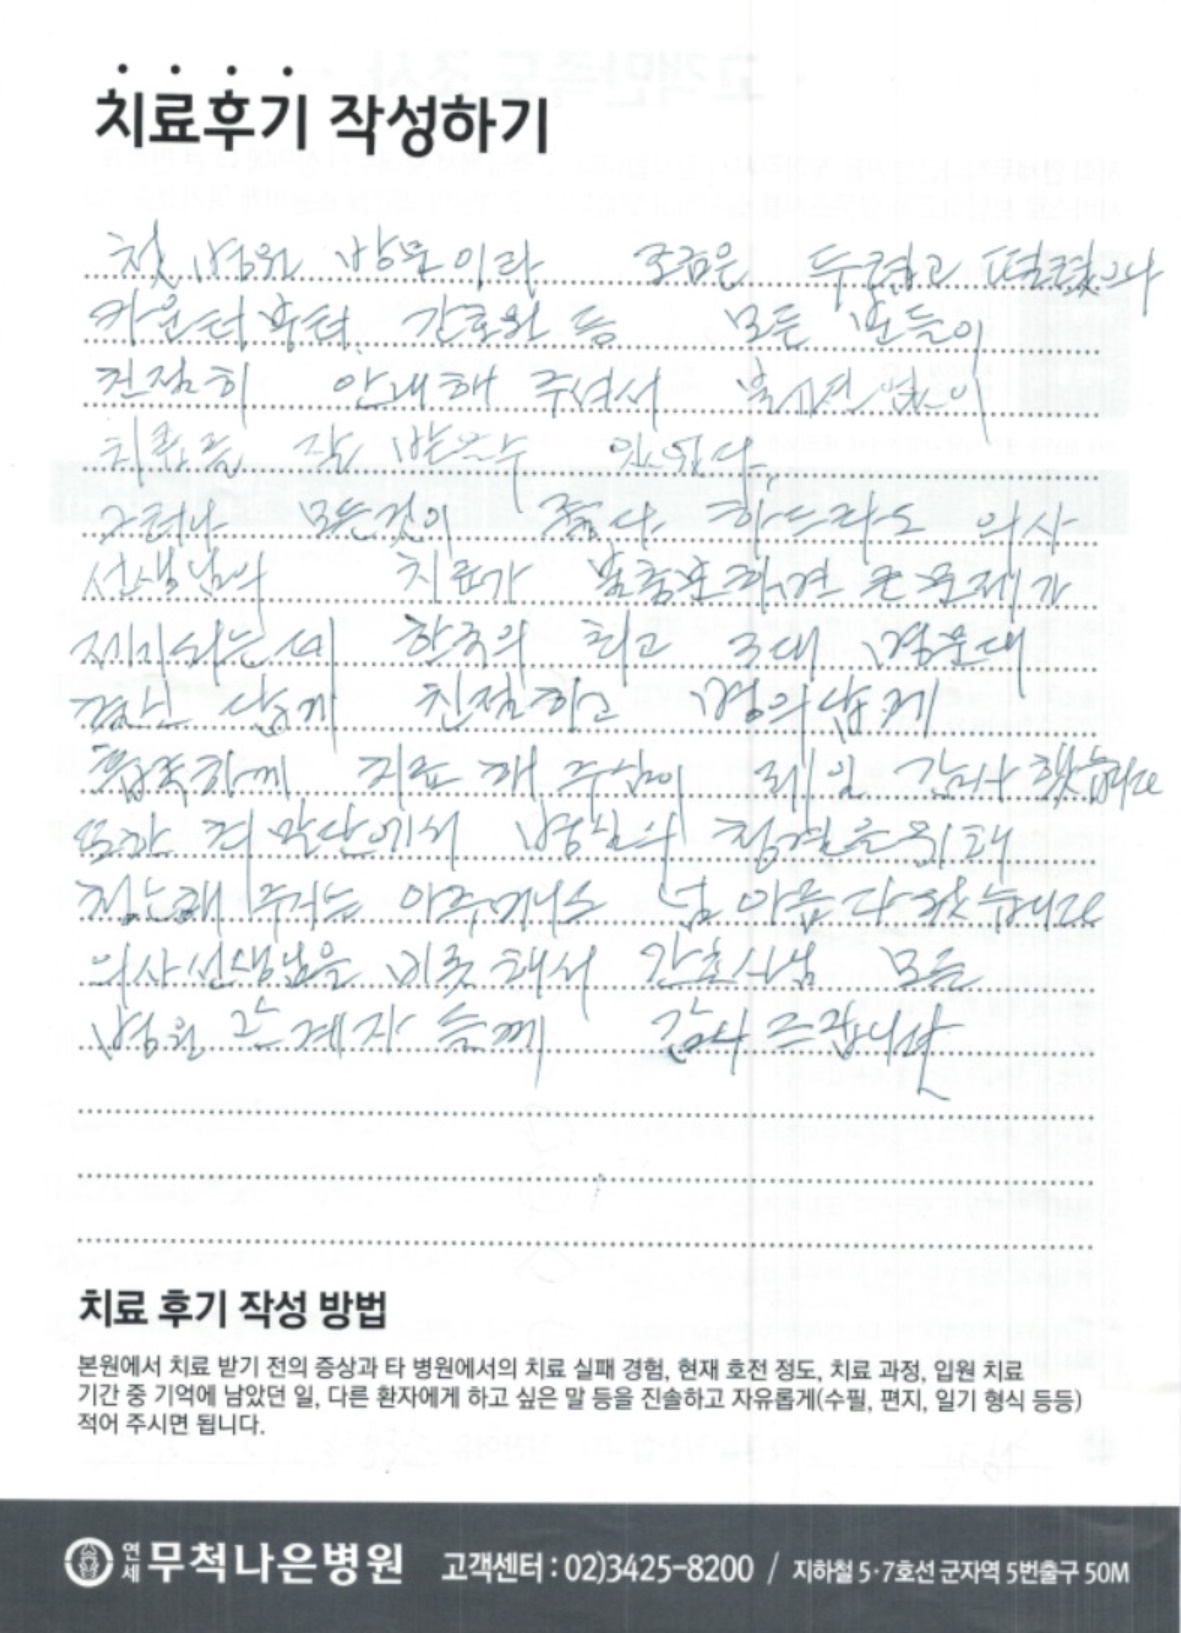 치료후기 작성하기
첫 병원 방문이라 조금은 두렵고 떨렸으나
카운터부터 간호원 등 모든 분들이
친절히 안내해 주셔서 불편없이
치료를 잘 받을수 있었다.
그러나 모든것이 좋다 하드라도 의사
선생님의 치료가 불충분하면 큰 문제가
제기되는데 한국의 최고 3대 명문대
출신 답게 친절하고 명의답게
흡족하게 치료 해 주심이 제일 감사 했습니다
또한 최 말단에서 병실의 청결을 위해
청소해 주시는 아주머니도 넘 아름다웠습니다
의사선생님을 비롯해서 간호사님 모든
병원 관계자 들께 감사 드립니다
치료 후기 작성 방법
본원에서 치료 받기 전의 증상과 타 병원에서의 치료 실패 경험, 현재 호전 정도, 치료 과정, 입원 치료
기간 중 기억에 남았던 일, 다른 환자에게 하고 싶은 말 등을 진솔하고 자유롭게(수필, 편지, 일기 형식 등등)
적어 주시면 됩니다.
연세 무척나은병원 고객센터 : 02)3425-8200 / 지하철 5·7호선 군자역 5번출구 50M